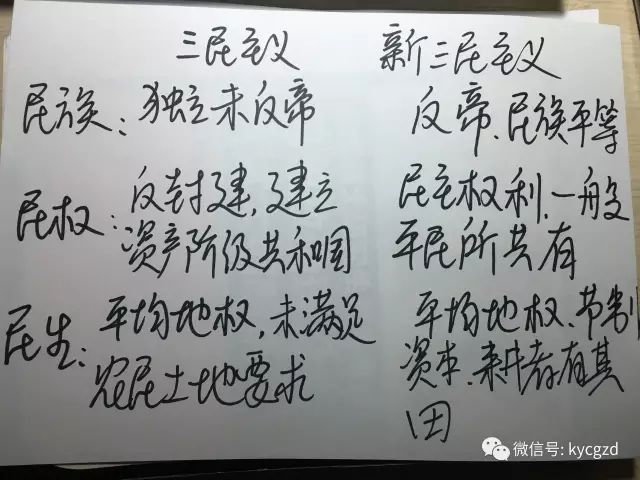 三民主义
新三民主义
民族：独立未反帝
反帝、民族平等
民权：反封建，建立
资产阶级共和国
民主权利、一般
平民所共有
民生：平均地权，未满足
农民土地要求
平均地权、节制
资本、耕者有其
田
微信号: kycgzd